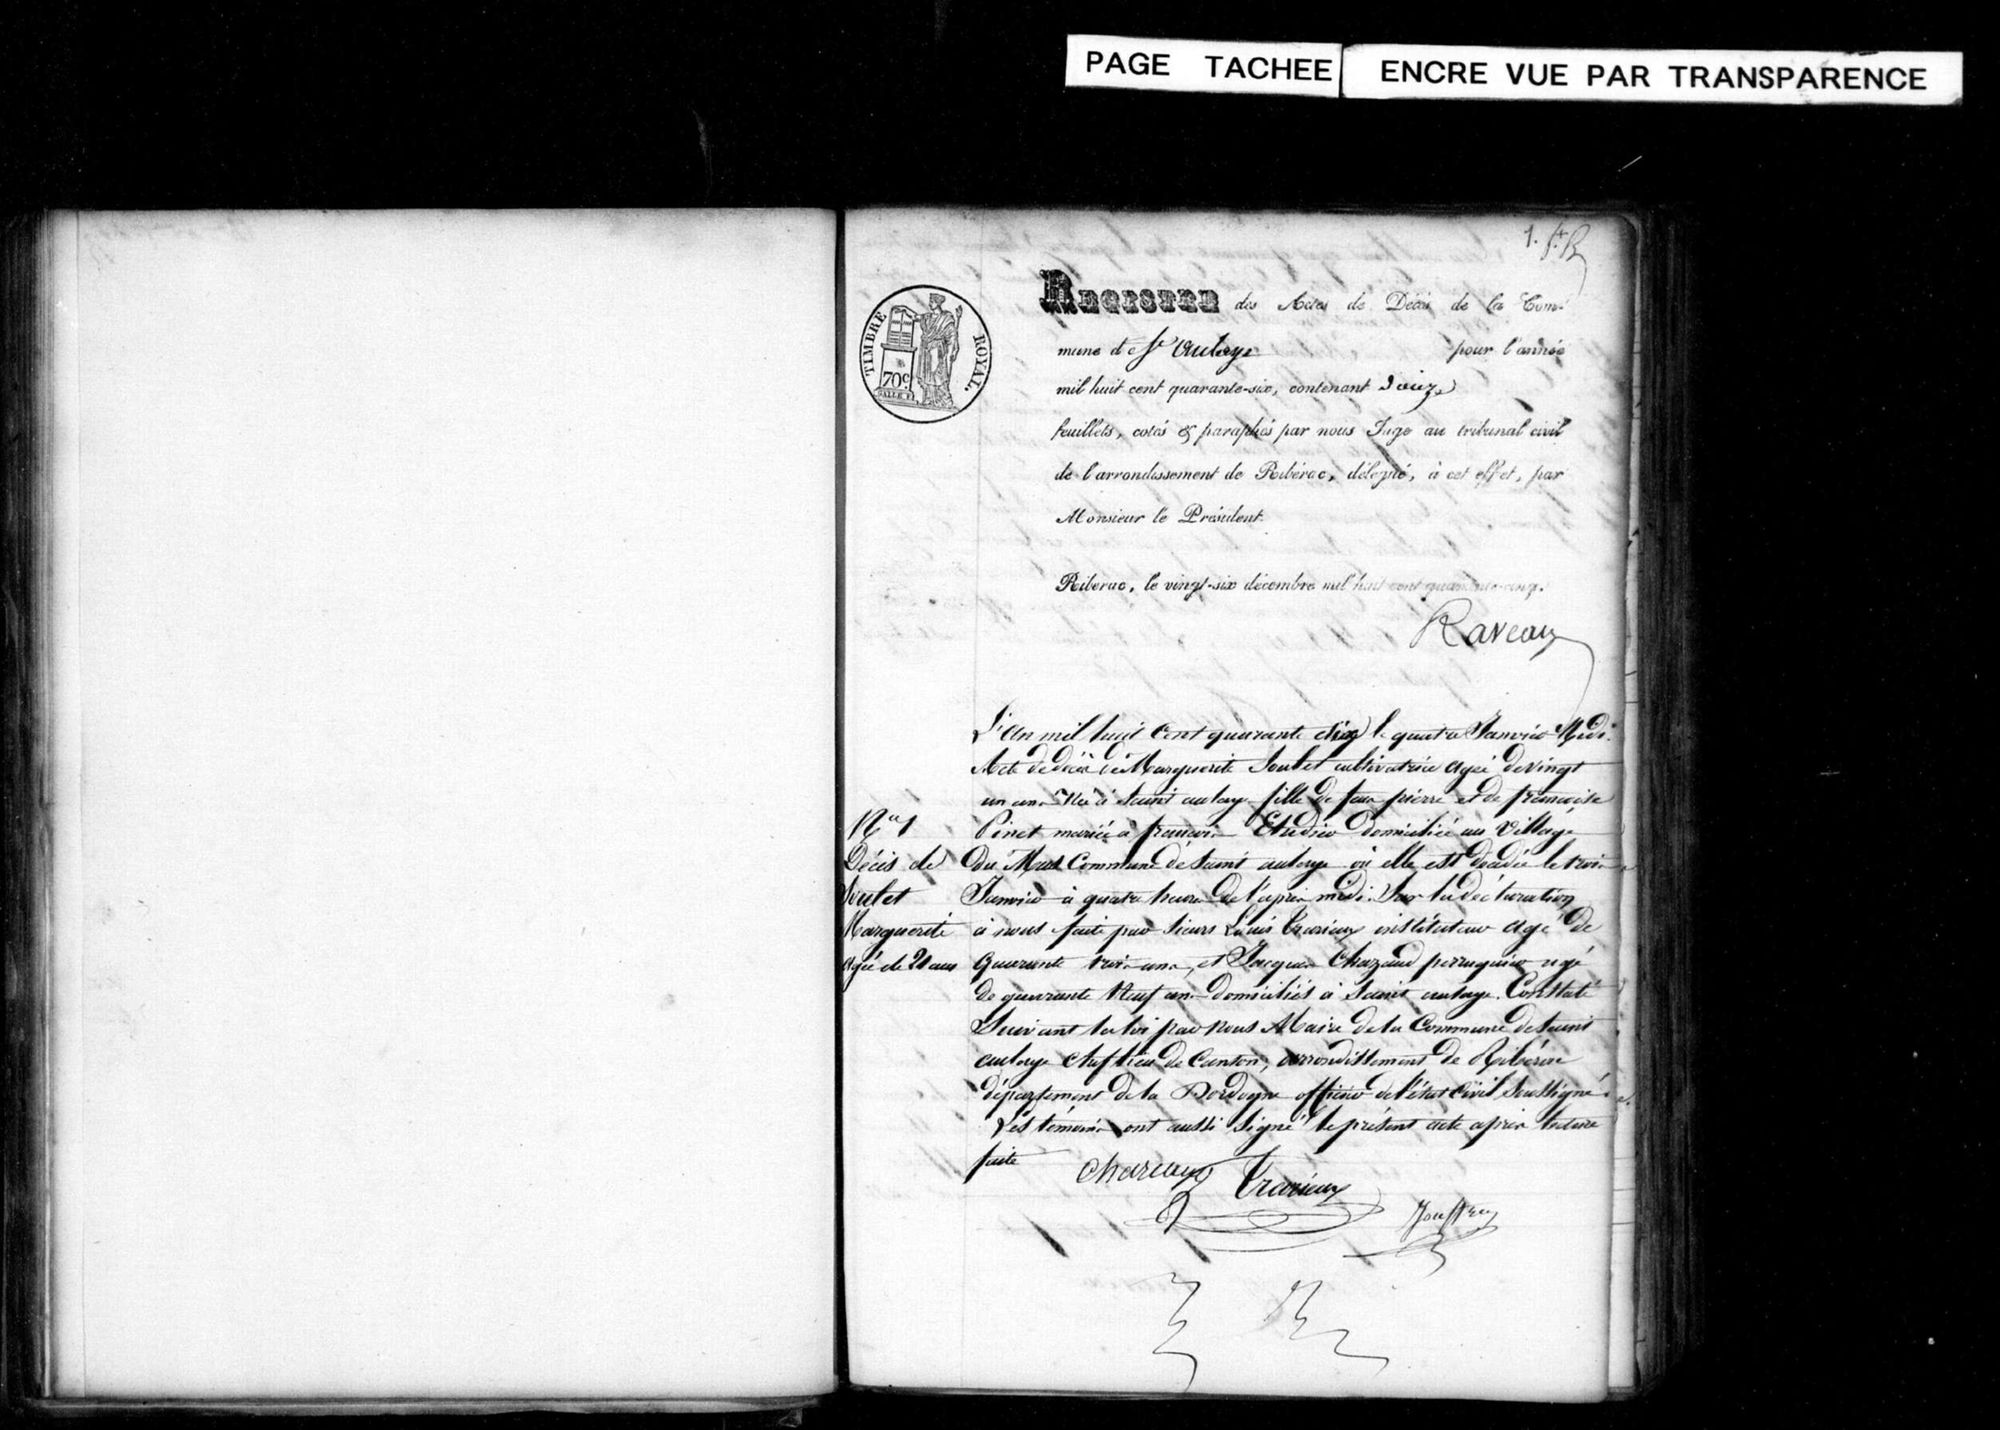 PAGE TACHEE ENCRE VUE PAR TRANSPARENCE
1.
TIMBRE ROYAL.
70c
REGISTRE des Actes de Décès de la Com-
mune de St Aulaye pour l'année
mil huit cent quarante-six, contenant douze
feuillets, cotés & paraphés par nous Juge au tribunal civil
de l'arrondissement de Ribérac, délégué, à cet effet, par
Monsieur le Président.
Riberac, le vingt-six décembre mil huit cent quarante-cinq.
Raveau
L'an mil huit cent quarante six le quatre Janvier Midi.
Acte de décès de Marguerite Soulet cultivatrice agée de vingt
un ans Née à Saint aulaye fille de feu pierre et de françoise
Pinet mariée à françois domiciliée au Village
du Mas Commune de Saint aulaye où elle est décédée le trois
Janvier à quatre heures de l'après midi. Sur la déclaration
à nous faite par Sieurs Louis Trarieux instituteur agé de
Quarante trois ans, et Jacques Chazaud perruquier agé
de quarante Neuf ans domiciliés à Saint aulaye. Constaté
Suivant la loi par nous Maire de la Commune de Saint
aulaye Chef lieu de Canton, arrondissement de Ribérac
département de la Dordogne officier de l'état Civil Soussigné.
Les témoins ont aussi Signé le présent acte après lecture
faite
N° 1
Décès de
Soulet
Marguerite
agée de 21 ans
Trarieux